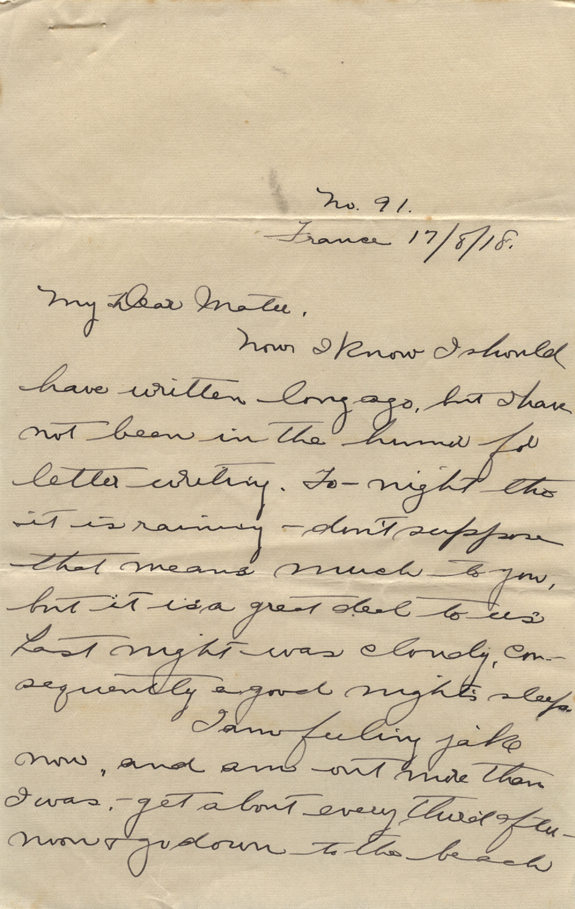 No. 91.
France 17/8/18.
My Dear Mater,
Now I know I should
have written long ago, but I have
not been in the humor for
letter writing. To-night tho
it is raining - don't suppose
that means much to you,
but it is a great deal to us
Last night was cloudy, con-
sequently a good nights sleep
I am feeling jake
now, and am out more than
I was, - get about every third after-
noon & go down to the beach